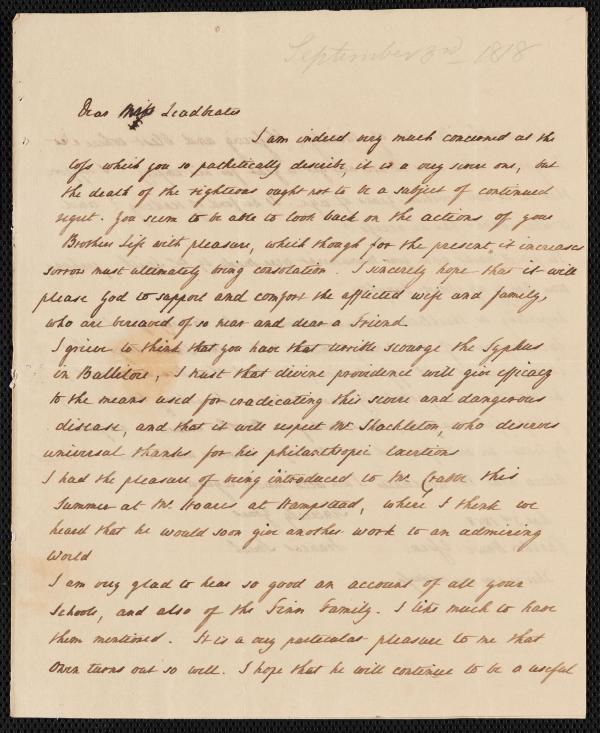 September 3rd 1818
Dear Miss Leadbeater
I am indeed very much concerned at the
loss which you so pathetically describe, it is a very severe one, but
the death of the righteous ought not to be a subject of continued
regret. You seem to be able to look back on the actions of your
Brothers Life with pleasure, which though for the present it increases
sorrow must ultimately bring consolation. I sincerely hope that it will
please God to support and comfort the afflicted wife and family,
who are bereaved of so near and dear a Friend.
I grieve to think that you have that terrible scourge the Typhus
in Ballitore, I trust that divine providence will give efficacy
to the means used for eradicating this severe and dangerous
disease, and that it will respect Mr Shackleton, who deserves
universal thanks for his philanthropic exertions
I had the pleasure of being introduced to Mr Crabbe this
Summer at Mr Hoares at Hampstead, where I think we
heard that he would soon give another work to an admiring
World
I am very glad to hear so good an account of all your
Schools, and also of the Finn Family. I like much to have
them mentioned. It is a very particular pleasure to me that
Owen turns out so well. I hope that he will continue to be a useful